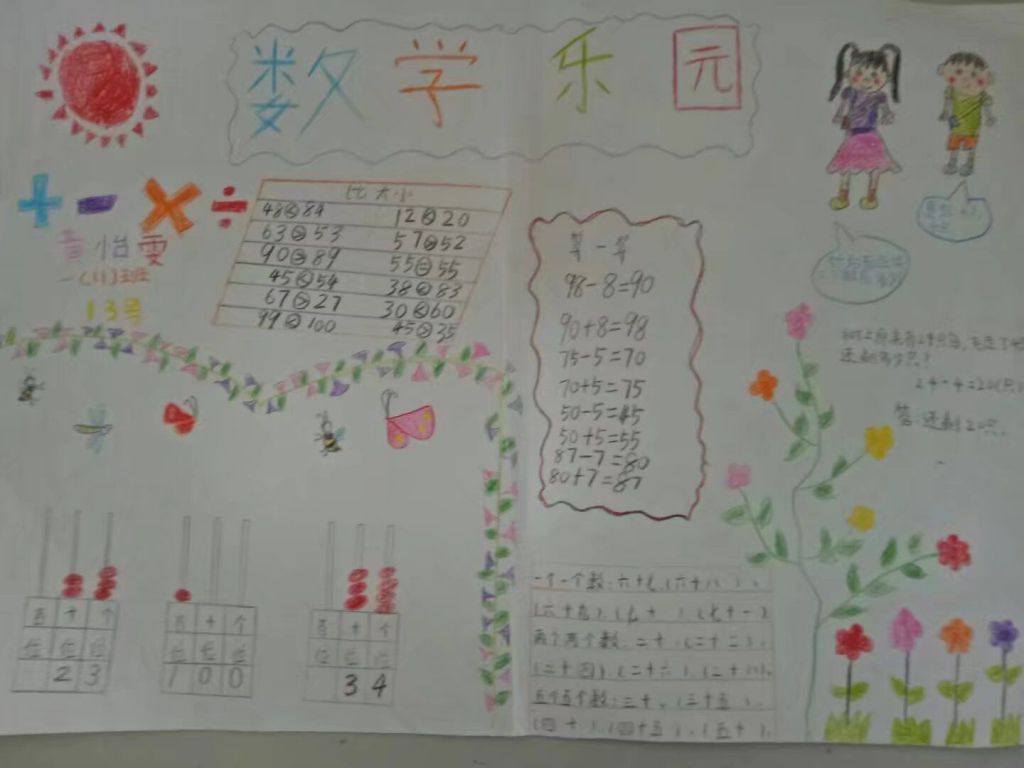 数学乐园
+ - × ÷
黄怡雯
一(11)班
13号
比大小
48<84 12<20
63>53 57>52
90>89 55=55
45<54 38<83
67>27 30<60
99<100 45>35
算一算
98-8=90
90+8=98
75-5=70
70+5=75
50-5=45
50+5=55
87-7=80
80+7=87
树上原来有24只鸟,飞走了
还剩多少只?
24-4=20(只)
答:还剩20只.
百 十 个
位 位 位
2 3
百 十 个
位 位 位
1 0 0
百 十 个
位 位 位
3 4
一个一个数:六十七、(六十八)、
(六十九)、(七十)、(七十一)
两个两个数:二十、(二十二)、
(二十四)、(二十六)、(二十八)、
五个五个数:三十、(三十五)、
(四十)、(四十五)、(五十)、